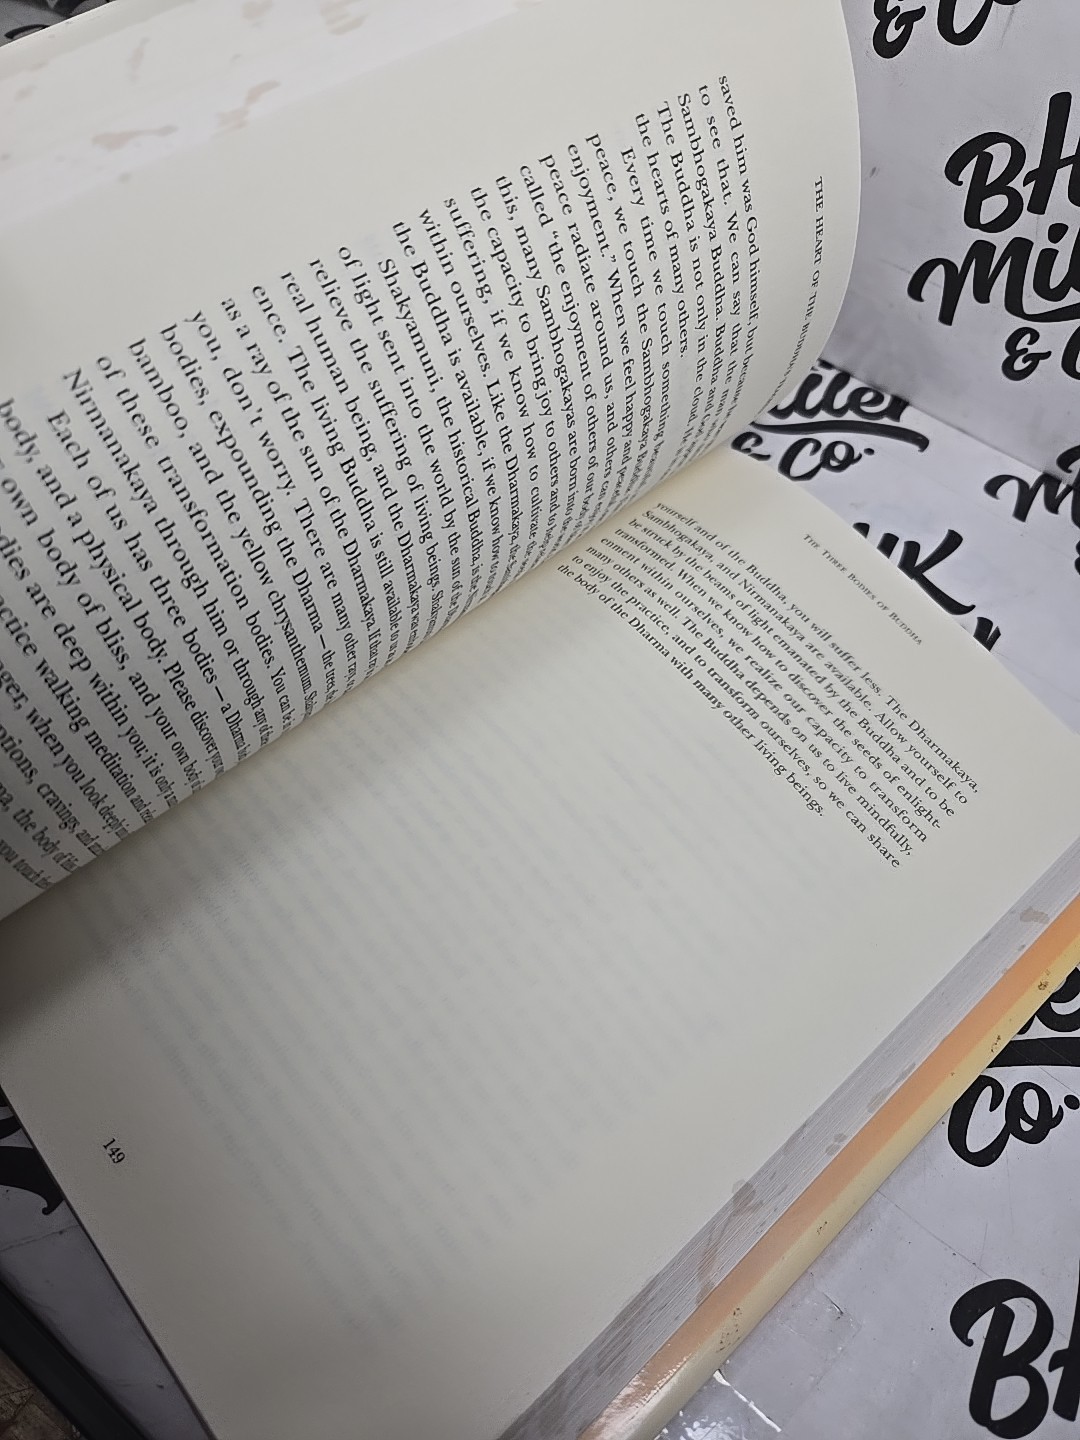 THE HEART OF THE
saved him was God himself, but because
to see that. We can say that the man
Sambhogakaya Buddha. Buddha and
The Buddha is not only in the cloud, he
the hearts of many others.
Every time we touch something beautiful
peace, we touch the Sambhogakaya Buddha
enjoyment." When we feel happy and peaceful
peace radiate around us, and others can
called "the enjoyment of others of our body
this, many Sambhogakayas are born into the
the capacity to bring joy to others and to help
suffering, if we know how to cultivate the
within ourselves. Like the Dharmakaya, the
the Buddha is available, if we know how to
Shakyamuni, the historical Buddha, is the
of light sent into the world by the sun of the
relieve the suffering of living beings. Shakyamuni
real human being, and the Dharmakaya was
ence. The living Buddha is still available to us
as a ray of the sun of the Dharmakaya. If that ray
you, don't worry. There are many other rays,
bodies, expounding the Dharma — the trees, the
bamboo, and the yellow chrysanthemum.
of these transformation bodies. You can be in
Nirmanakaya through him or through any of these
Each of us has three bodies — a Dharma
body, and a physical body. Please discover your
own body of bliss, and your own body
bodies are deep within you; it is only
practice walking meditation and
when you look deeply
cravings, and
the body of
you touch
THE THREE BODIES OF BUDDHA
yourself and of the Buddha, you will suffer less. The Dharmakaya,
Sambhogakaya, and Nirmanakaya are available. Allow yourself to
be struck by the beams of light emanated by the Buddha and to be
transformed. When we know how to discover the seeds of enlight-
enment within ourselves, we realize our capacity to transform
many others as well. The Buddha depends on us to live mindfully,
to enjoy the practice, and to transform ourselves, so we can share
the body of the Dharma with many other living beings.
149
& Co.
BH
Mil
& C
iller
& Co.
M
UK
Co.
BH